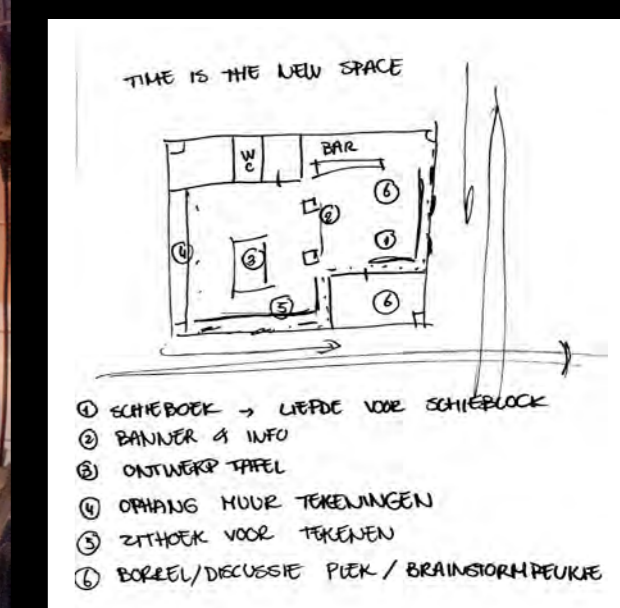 TIME IS THE NEW SPACE
WC
BAR
6
2
4
3
1
5
6
① SCHIEBOEK → LIEFDE VOOR SCHIEBLOCK
② BANNER & INFO
③ ONTWERP TAFEL
④ OPHANG MUUR TEKENINGEN
⑤ ZITHOEK VOOR TEKENEN
⑥ BORREL/DISCUSSIE PLEK / BRAINSTORMPEUKJE